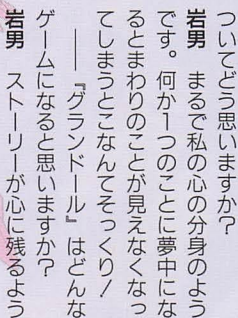 ついてどう思いますか？
岩男　まるで私の心の分身のよう
です。何か1つのことに夢中にな
るとまわりのことが見えなくなっ
てしまうとこなんてそっくり！
――『グランドール』はどんな
ゲームになると思いますか？
岩男　ストーリーが心に残るよう